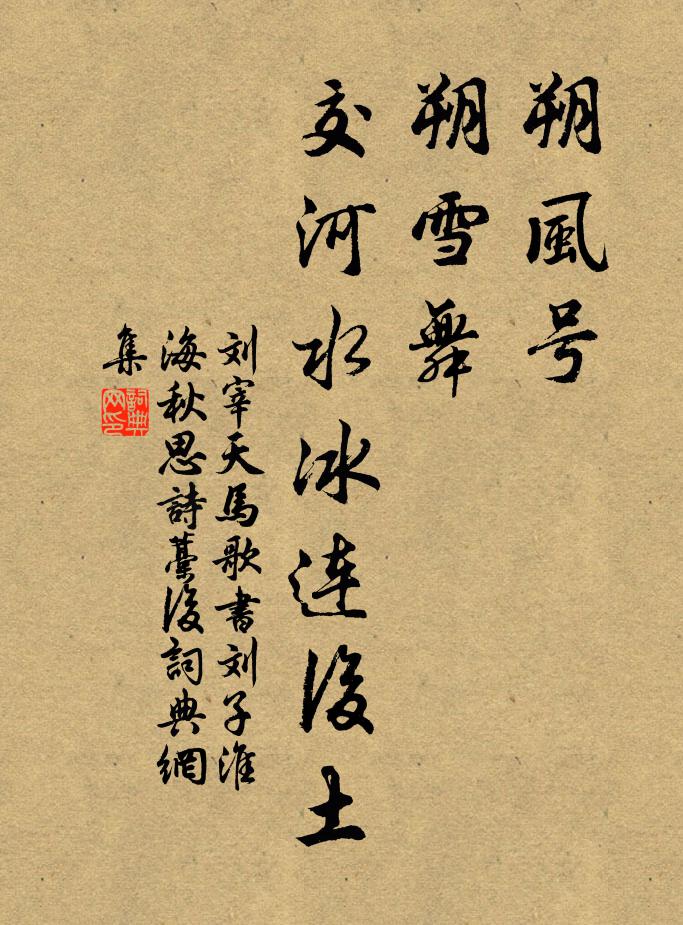 朔風号
朔雪舞
交河水冰连後土
刘宰天馬歌書刘子淮
海秋思詩藁後詞典網
集
詞典
网印